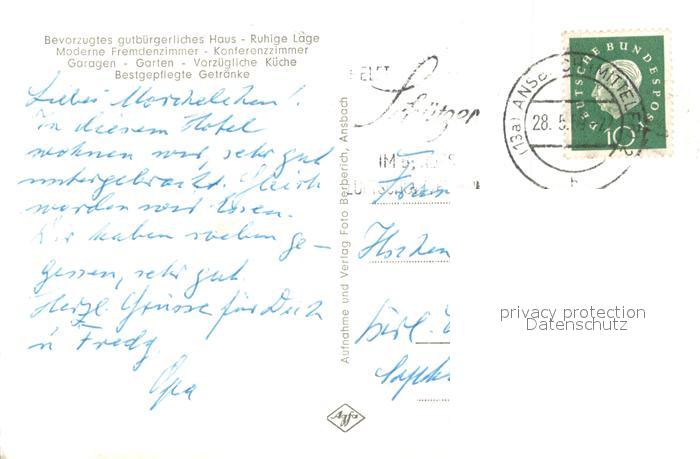 Bevorzugtes gutbürgerliches Haus - Ruhige Lage
Moderne Fremdenzimmer - Konferenzzimmer
Garagen - Garten - Vorzügliche Küche
Bestgepflegte Getränke
In diesem Hotel
wohnen wir, sehr gut
untergebracht. Gleich
werden wir
Wir haben soeben ge-
gessen, sehr gut.
Herzl. Grüsse für Dich
u Fredy
Opa
Aufnahme und Verlag Foto Berberich, Ansbach
Agfa
HELFT
IM
(13a) ANSBACH (MITTEL
28. 5.
b
DEUTSCHE BUNDESPOST
10
Frau
privacy protection
Datenschutz